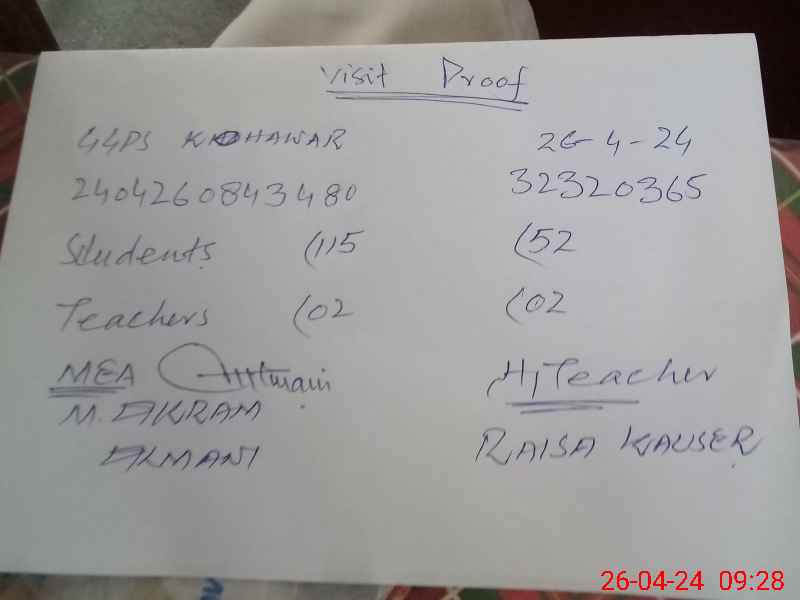 Visit Proof
GGPS KHAWAR 26-4-24
2404260843480 32320365
Students (115 (52
Teachers (02 (02
MEA H/Teacher
M. AKRAM
ALMANI RAISA KAUSER
26-04-24 09:28